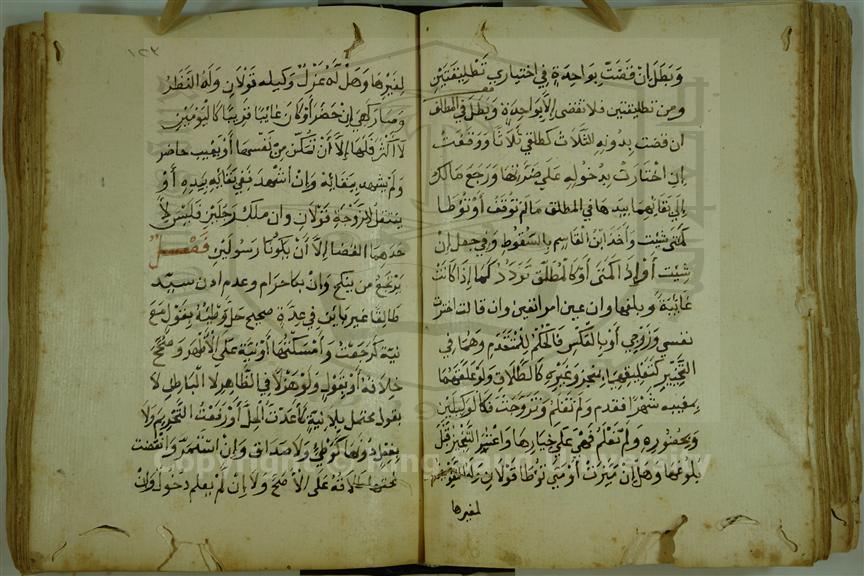 وبطل إن قضت بواحدة في اختياري تطليقتين
ومن تطليقتين فلا تقضى إلا بواحدة وبطل في المطلق
ان قضت بدون الثلاث كطلقي ثلاثا ووقفت
ان اختارت بدخوله على ضرتها ورجع مالك
إلى بقائهما بيدها في المطلق مالم توقف أو توطا
كمتى شيت وأخذ ابن القاسم بالسقوط وفي جعل ان
شيت أو إذا كمتى أو كالمطلق تردد كما إذا كانت
غائبة وبلغها وان عين امرا تعين وان قالت اخترت
نفسي وزوجي أو بالعكس فالحكم للمتقدم وهما في
التخيير كتعليقهما بمنجز وغيره كالطلاق ولو علقهما
بمغيبه شهرا فقدم ولم تعلم وتزوجت فكالوليين
وبحضوره ولم تعلم فهي على خيارها واعتبر التنجيز قبل
بلوغها وهل إن ميزت أو متى توطا قولان وله التفويض
لغيرها
١٢٣
لغيرها وهل له عزل وكيله قولان وله النظر
وصار كهي إن حضر أو كان غايبا قريبا كاليومين
لا أكثر فلها إلا أن تمكن من نفسها أو يغيب حاضر
ولم يشهد ببقائه وان أشهد ففي بقائه بيده أو
ينتقل للزوجة قولان وان ملك رجلين فليس لا
حدهما القضا إلا أن يكونا رسولين فصل
يرتجع من ينكح وان بكاحرام وعدم اذن سيد
طالقا غير باين في عدة صحيح حل وطئه بقول مع
نية كرجعت وأمسكتها أو نية على الأظهر وصحح
خلافه أو بقول ولو هزلا في الظاهر لا الباطن لا
بقول محتمل بلا نية كأعدت الحل أو رفعت التحريم ولا
بفعل دونها كوطئ ولا صداق وان استمر وانقضت
لحقها طلاقه على الأصح ولا إن لم يعلم دخول وان